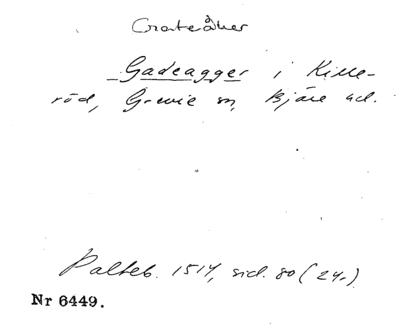 Gateåker
Gadeagger i Kille-
röd, Grevie sn, Bjäre hd.
Palteb. 1514, sid. 80 (24r)
Nr 6449.